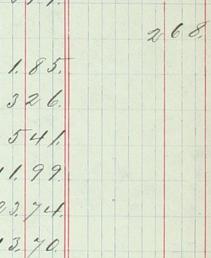 268.
1.85.
3.26.
5.41.
11.99
23.74.
13.70.